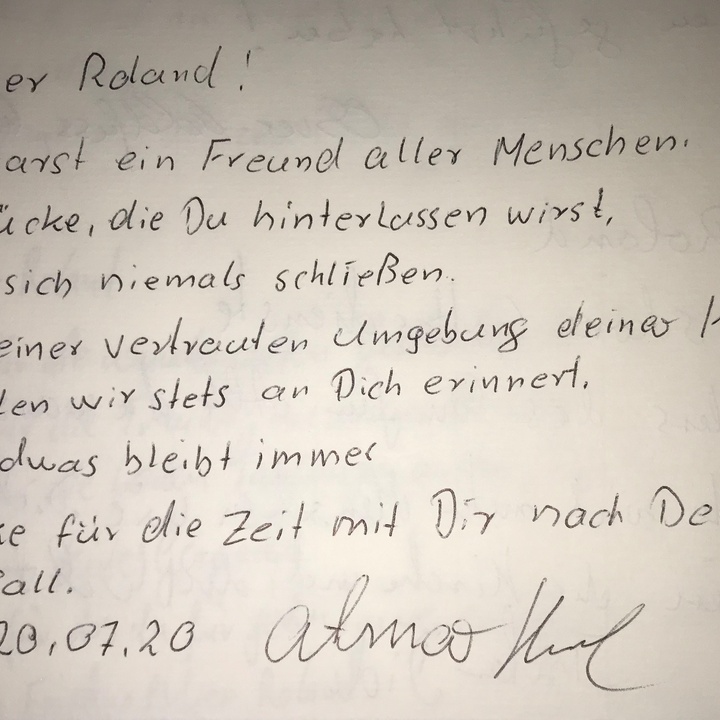 er Roland!
arst ein Freund aller Menschen.
ücke, die Du hinterlassen wirst,
sich niemals schließen.
einer vertrauten Umgebung deiner H
len wir stets an Dich erinnert.
dwas bleibt immer
ke für die Zeit mit Dir nach De
all.
20.07.20